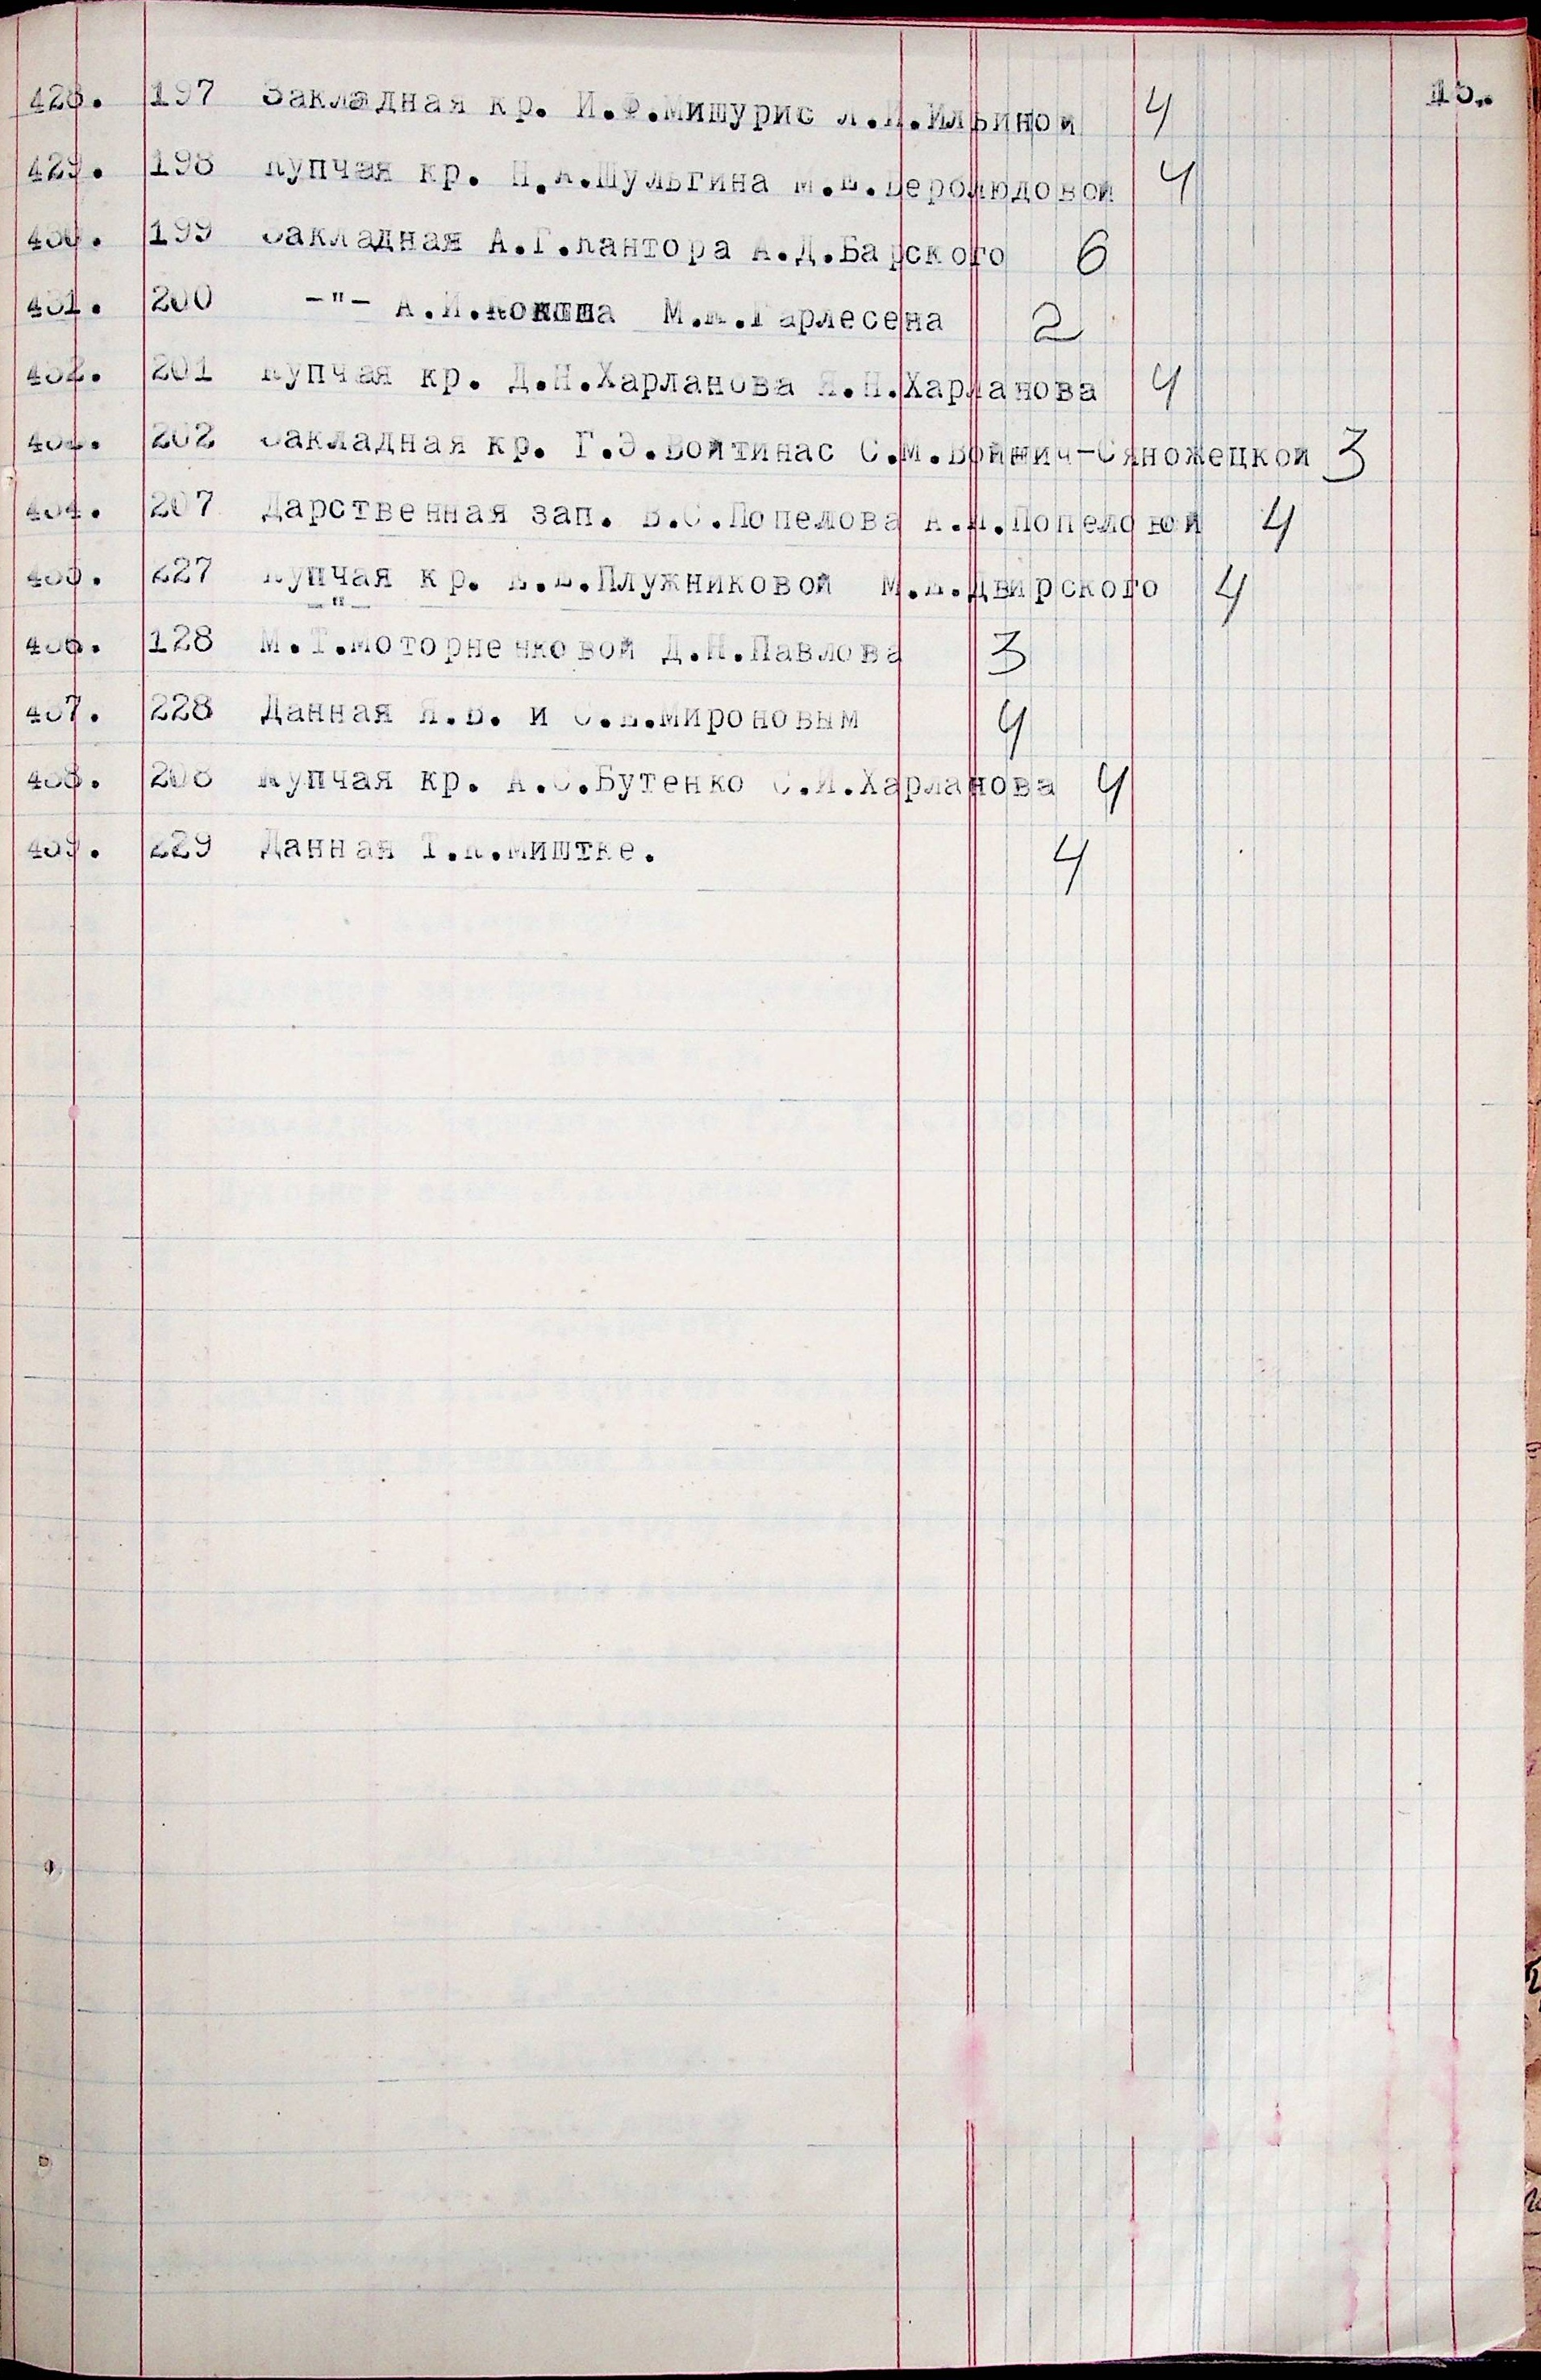 15.
428. 197 Закладная кр. И.Ф.Мишурис Л.И.Ильиной 4
429. 198 Купчая кр. Н.А.Шульгина М.Е.Верблюдовой 4
430. 199 Закладная А.Г.Кантора А.Д.Барского 6
431. 200 -"- А.И. М.К.Гарлесена 2
432. 201 Купчая кр. Д.Н.Харланова Я.Н.Харланова 4
433. 202 Закладная кр. Г.Э.Войтинас С.М.Войнич-Сяножецкой 3
434. 207 Дарственная зап. В.С.Попелова Попеловой 4
435. 227 Купчая кр. Плужниковой Двирского 4
-"-
436. 128 М.Т.Моторненковой Д.Н.Павлова 3
437. 228 Данная Я.В. и С.В.Мироновым 4
438. 208 Купчая кр. А.С.Бутенко С.И.Харланова 4
439. 229 Данная Т.К.Миштке. 4